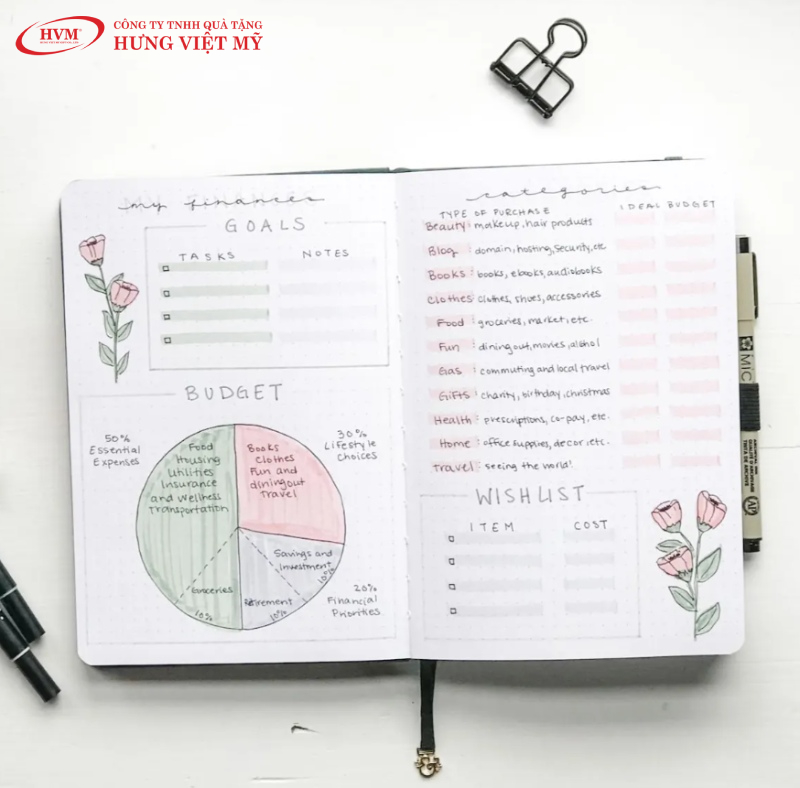 HVM
CÔNG TY TNHH QUÀ TẶNG
HƯNG VIỆT MỸ
my finances
GOALS
TASKS NOTES
BUDGET
50%
Essential
Expenses
Food
Housing
Utilities
Insurance
and Wellness
Transportation
Groceries
10%
Books
Clothes
Fun and
dining out
Travel
30%
Lifestyle
Choices
Savings and
Investment
10%
Retirement
10%
20%
Financial
Priorities
categories
TYPE OF PURCHASE IDEAL BUDGET
Beauty: makeup, hair products
Blog: domain, hosting, security, etc
Books: books, ebooks, audiobooks
Clothes: clothes, shoes, accessories
Food: groceries, market, etc.
Fun: dining out, movies, alcohol
Gas: commuting and local travel
Gifts: charity, birthday, christmas
Health: prescriptions, co-pay, etc.
Home: office supplies, decor, etc.
Travel: seeing the world!
WISHLIST
ITEM COST
MIC